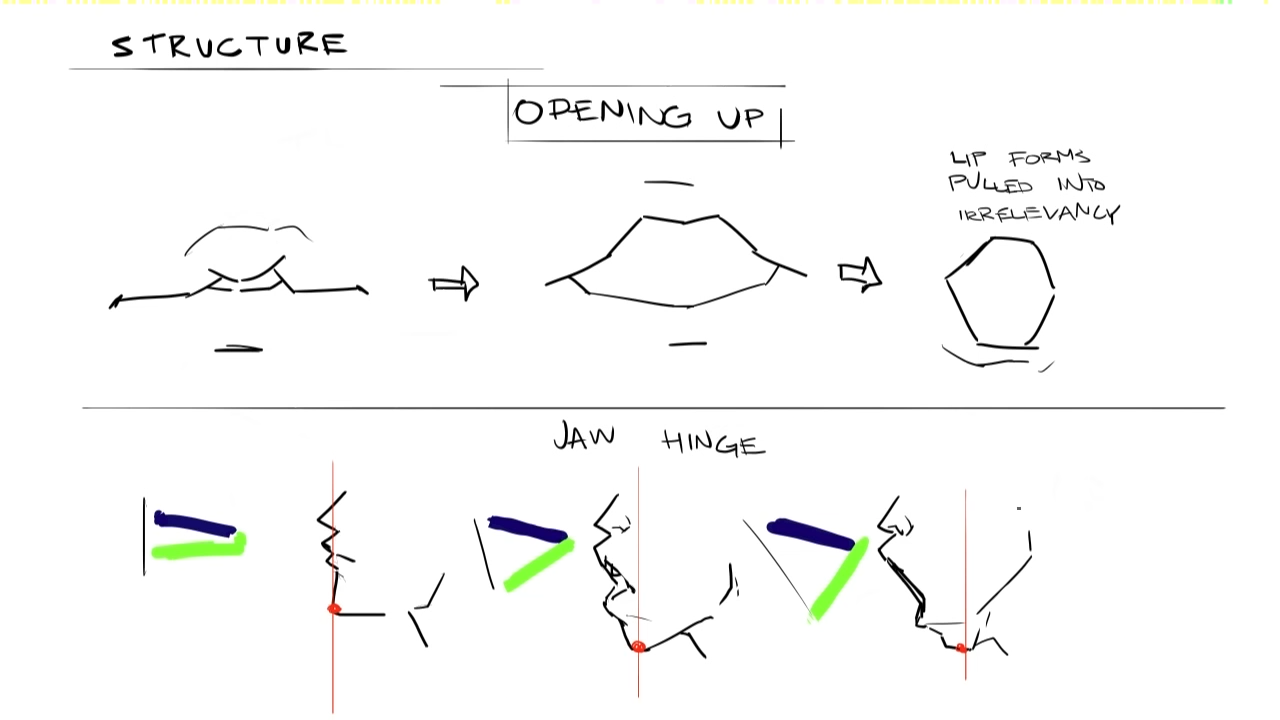 STRUCTURE
OPENING UP
LIP FORMS
PULLED INTO
IRRELEVANCY
JAW HINGE